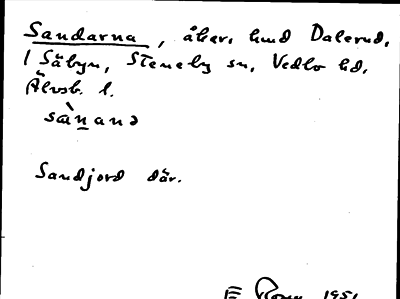 Sandarna, åker, hmd Dalerud,
1 Säbyn, Steneby sn, Vedbo hd,
Älvsb. l.
sànanə
Sandjord där.
E 1951